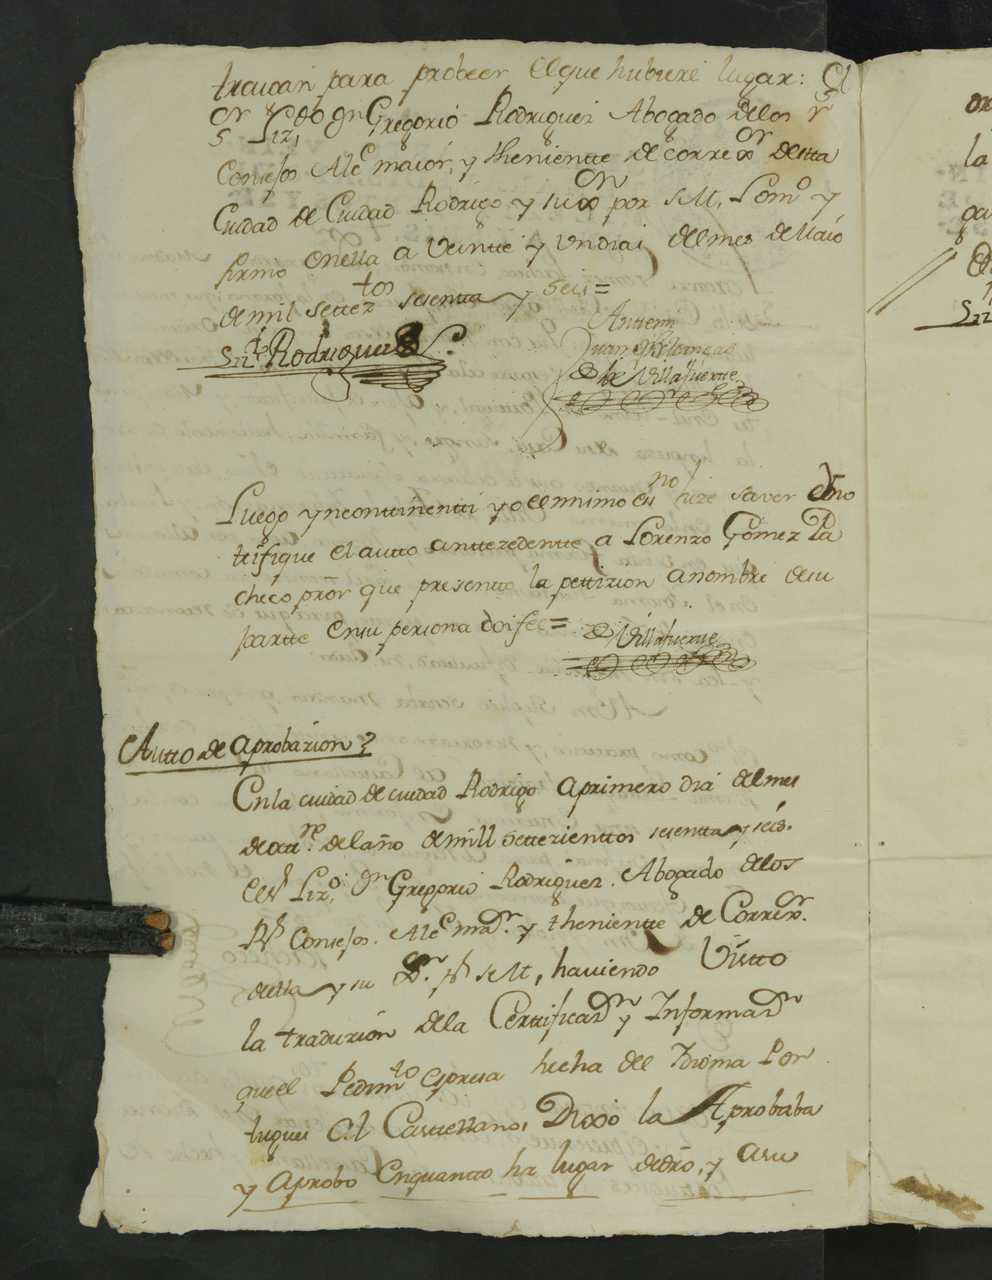 traucan para probeer el que hubiere lugar: El
Sr Lizdo Dn Gregorio Rodriguez Abogado delos Rs
Consejos Alce maior, y theniente de corregor de esta
Ciudad de Ciudad Rodrigo y su por S M, Lo mo y
firmo en ella a Veinte y un dias del mes de Maio
de mil settezttos sesentta y seis =
Antemi
Lizdo Rodriguez
Juan
de Villafuertte
Luego yncontinentti yo el mismo ssno hize saver y no
trifique el autto anttezedentte a Lorenzo Gomez Pa
checo pror que presentto la pettizion a nombre de su
partte en su persona doi fee =
Villafuertte
Autto de aprobazion
En la ciudad de ciudad Rodrigo a primero dia del mes
de ottre del año de mill settezienttos sesentta y seis.
El Sr Lizdo Dn Gregorio Rodriguez. Abogado de los
Rs Consejos. Alce mar. y theniente de Corregor.
de ella y su por S M, haviendo Vistto
la traduzion de la Certificazn y Informazn
que el Pedimto espresa hecha del Idioma Por
tugues al Castellano, Dixo la Aprobaba
y aprobo en quantto ha lugar de dro, y a su